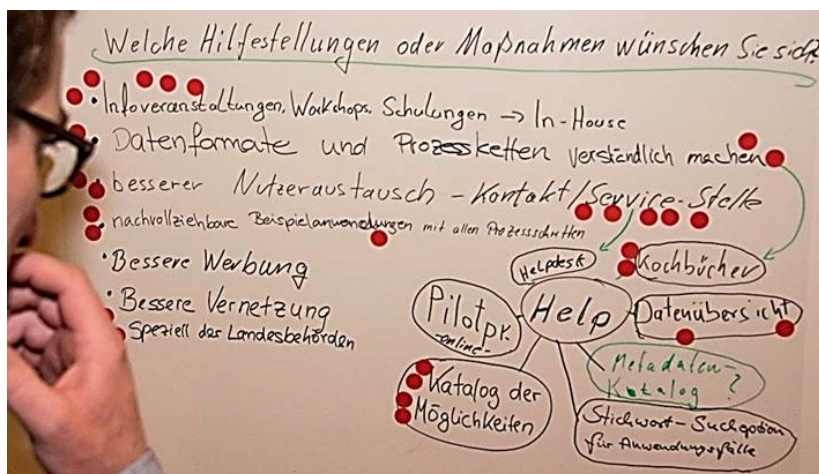 Welche Hilfestellungen oder Maßnahmen wünschen Sie sich?
• Infoveranstaltungen, Workshops, Schulungen → In-House
• Datenformate und Prozessketten verständlich machen
• besserer Nutzeraustausch – Kontakt/Service-Stelle
• nachvollziehbare Beispielanwendungen mit allen Prozessschritten
• Bessere Werbung
• Bessere Vernetzung
Speziell der Landesbehörden
Helpdesk
Kochbücher
Pilotpr.
-online-
Help
Datenübersicht
Metadaten-
Katalog ?
Katalog der
Möglichkeiten
Stichwort-Suchoption
für Anwendungsfälle